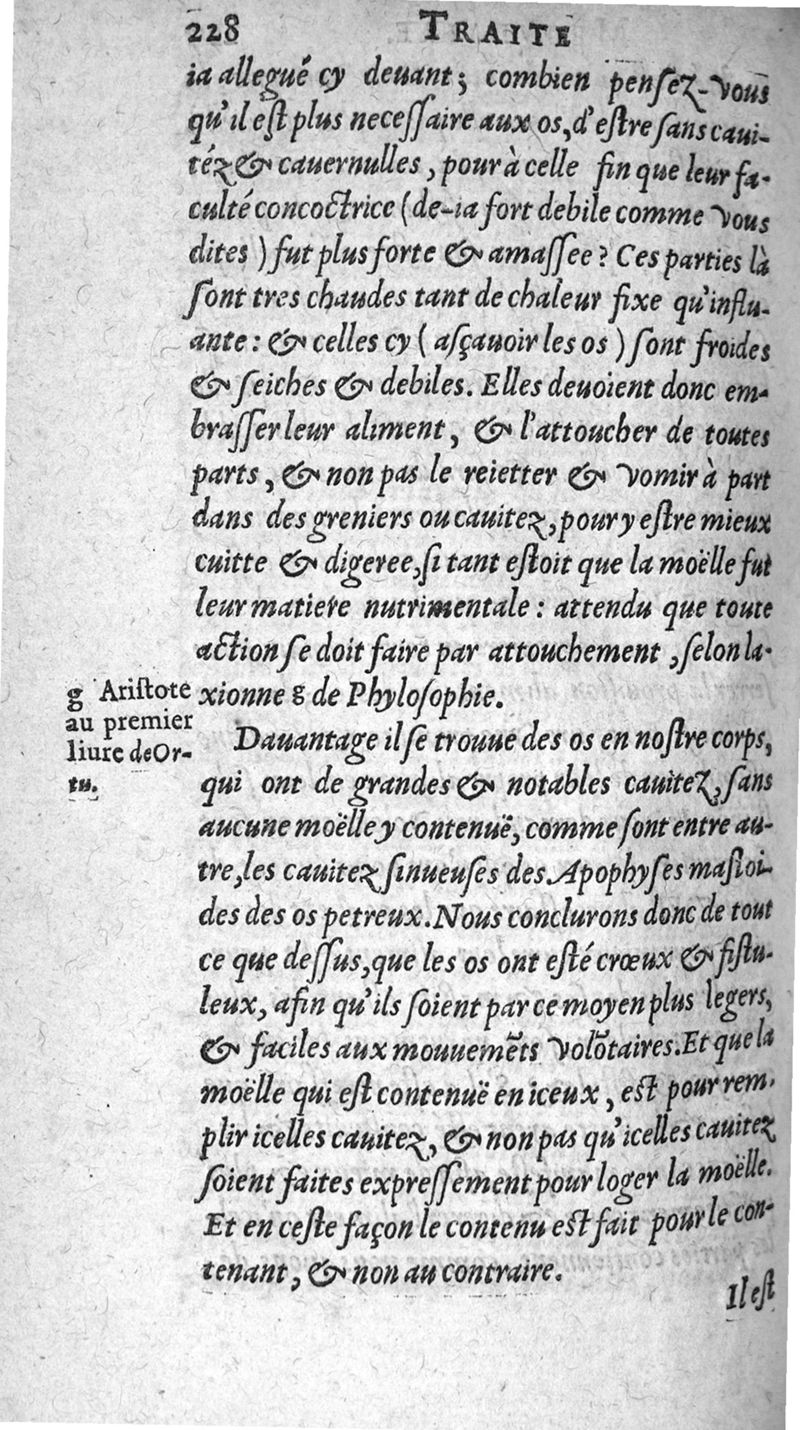 228 TRAITE
ia allegué cy deuant; combien penſez-vous
qu'il eſt plus neceſſaire aux os, d'eſtre ſans caui-
téz & cauernulles, pour à celle fin que leur fa-
culté concoctrice (de-ia fort debile comme vous
dites) fut plus forte & amaſſee? Ces parties là
ſont tres chaudes tant de chaleur fixe qu'influ-
ante: & celles cy (aſçauoir les os) ſont froides
& ſeiches & debiles. Elles deuoient donc em-
braſſer leur aliment, & l'attoucher de toutes
parts, & non pas le reietter & vomir à part
dans des greniers ou cauitez, pour y eſtre mieux
cuitte & digeree, ſi tant eſtoit que la moëlle fut
leur matiere nutrimentale: attendu que toute
action ſe doit faire par attouchement, ſelon la-
xionne g de Phyloſophie.
g Ariſtote
au premier
liure de Or-
tu.
Dauantage il ſe trouue des os en noſtre corps,
qui ont de grandes & notables cauitez, ſans
aucune moëlle y contenuë, comme ſont entre au-
tre, les cauitez ſinueuſes des Apophyſes maſtoi-
des des os petreux. Nous conclurons donc de tout
ce que deſſus, que les os ont eſté crœux & fiſtu-
leux, afin qu'ils ſoient par ce moyen plus legers,
& faciles aux mouuemẽts volõtaires. Et que la
moëlle qui eſt contenuë en iceux, eſt pour rem-
plir icelles cauitez, & non pas qu'icelles cauitez
ſoient faites expreſſement pour loger la moëlle.
Et en ceſte façon le contenu eſt fait pour le con-
tenant, & non au contraire.
Il eſt